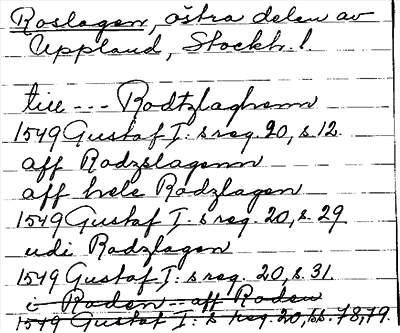 Roslagen, östra delen av
Uppland, Stockh. l.
till --- Rodtzlaghenn
1549 Gustaf I: s reg. 20, s. 12.
aff Rodzslagenn
aff hele Rodzlagen
1549 Gustaf I: s reg. 20, s. 29
udi Rodzlagen
1549 Gustaf I: s reg. 20, s. 31
i Roden - aff Roden
1549 Gustaf I: s reg. 20, ss. 78, 79.